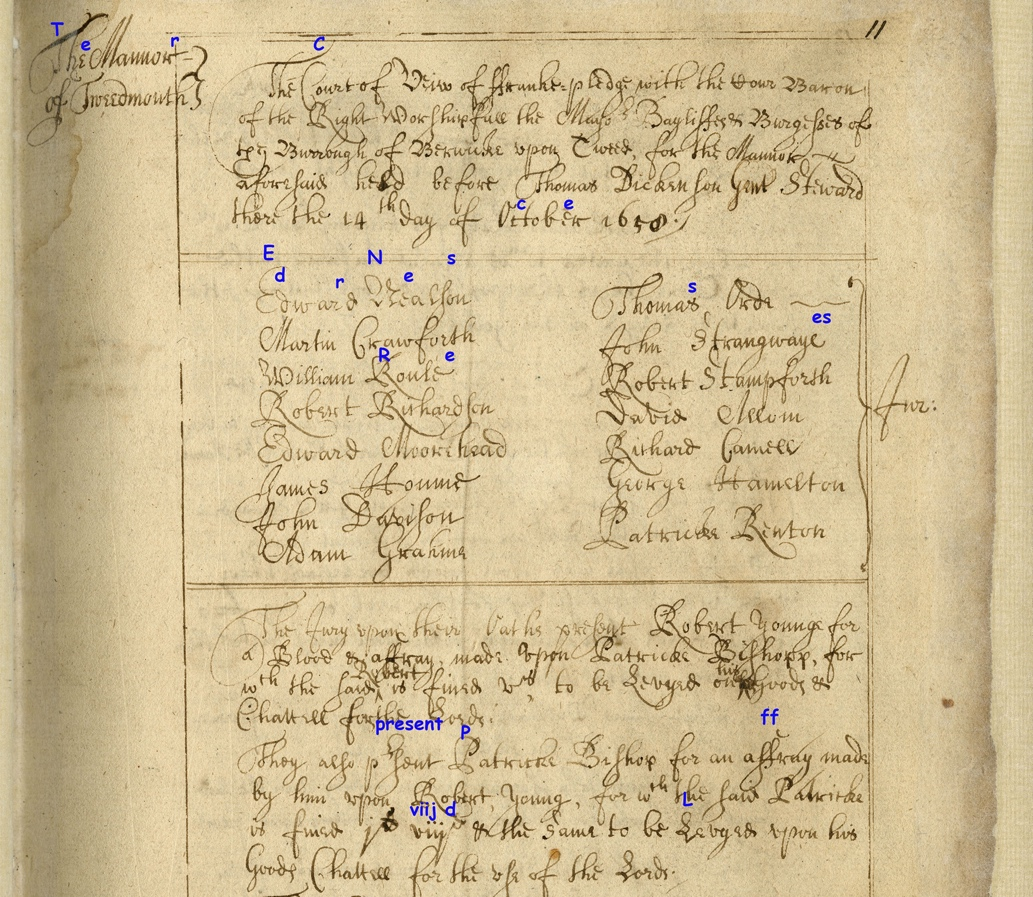 11
The Mannor
of Tweedmouth
The Court of Veiw of ffranke-pledge with the Cour Baron
of the Right Worshipfull the Mayor Bayliffes & Burgesses of
the Burrough of Berwicke upon Tweed, for the Mannor
aforesaid held before Thomas Dickenson gent Steward
there the 14th day of October 1658
Edward Nealson
Martin Crawforth
William Roule
Robert Richardson
Edward Moorehead
James Houme
John Davison
Adam Grahme
Thomas Orde
John Strangwayes
Robert Stampforth
David Allom
Richard Camell
George Hamelton
Patricke Renton
Jur:
The Jury upon their Oathes present Robert Younge for
a Blood & affray, made upon Patricke Bishopp, for
wth the said Robert is fined vs to be Levyed his Goods &
Chattell for the Lords.
They also present Patricke Bishop for an affray made
by him upon Robert Young, for wth the said Patricke
is fined viijd & the same to be Levyed upon his
Goods Chattell for the use of the Lords.
T
e
r
C
c e
E
N
s
d
r
e
R e
s
es
present P
ff
L
viij d